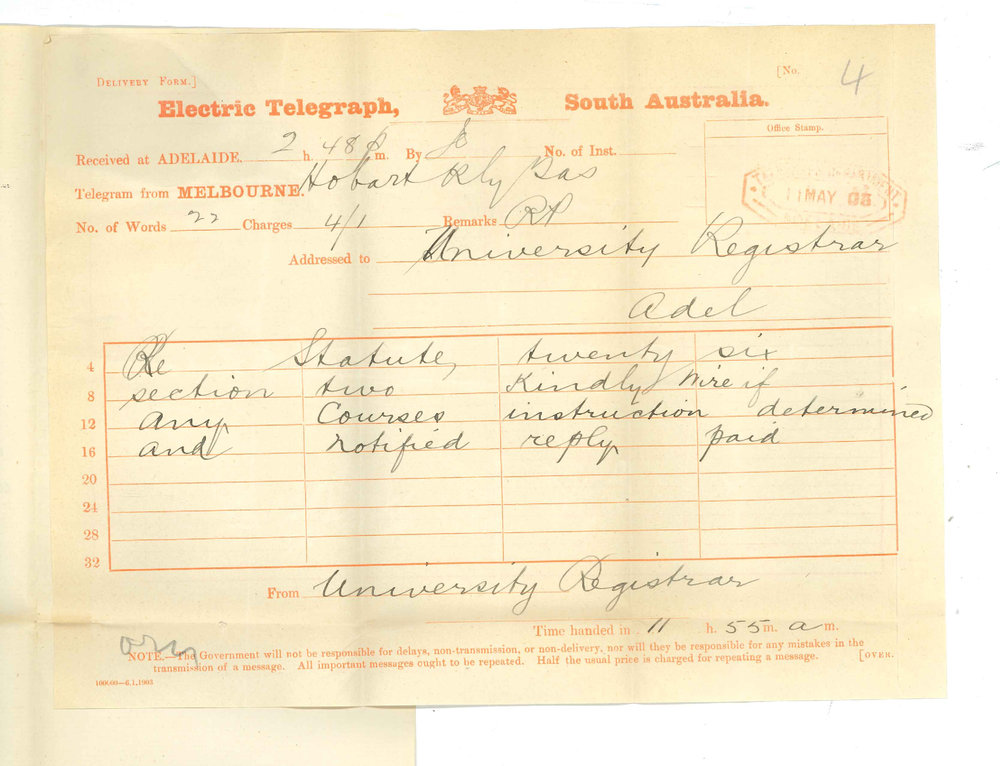 DELIVERY FORM.] [No. 4
Electric Telegraph, South Australia.
Office Stamp.
Received at ADELAIDE. 2 h. 48 p m. By No. of Inst.
Telegram from MELBOURNE. Hobart Tas
11 MAY 03
No. of Words 22 Charges 4/1 Remarks RP
Addressed to University Registrar
Adel
4 Re Statute, twenty six
8 section two Kindly wire if
12 any Courses instruction determined
16 and notified reply paid
20
24
28
32
From University Registrar
Time handed in 11 h. 55 m. a m.
NOTE.—The Government will not be responsible for delays, non-transmission, or non-delivery, nor will they be responsible for any mistakes in the
transmission of a message. All important messages ought to be repeated. Half the usual price is charged for repeating a message. [OVER.
100000—6.1.1903